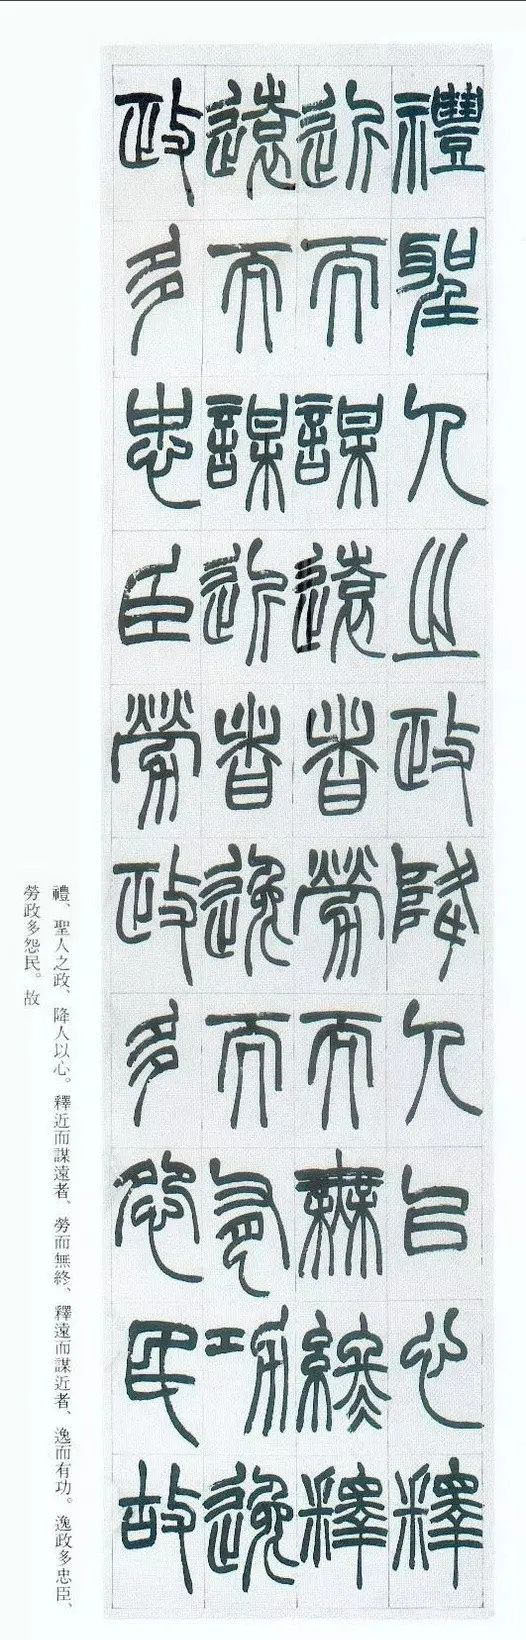 禮聖人之政降人以心釋
近而謀遠者勞而無終釋
遠而謀近者逸而有功逸
政多忠臣勞政多怨民故
禮、聖人之政、降人以心。釋近而謀遠者、勞而無終、釋遠而謀近者、逸而有功。逸政多忠臣、
勞政多怨民。故